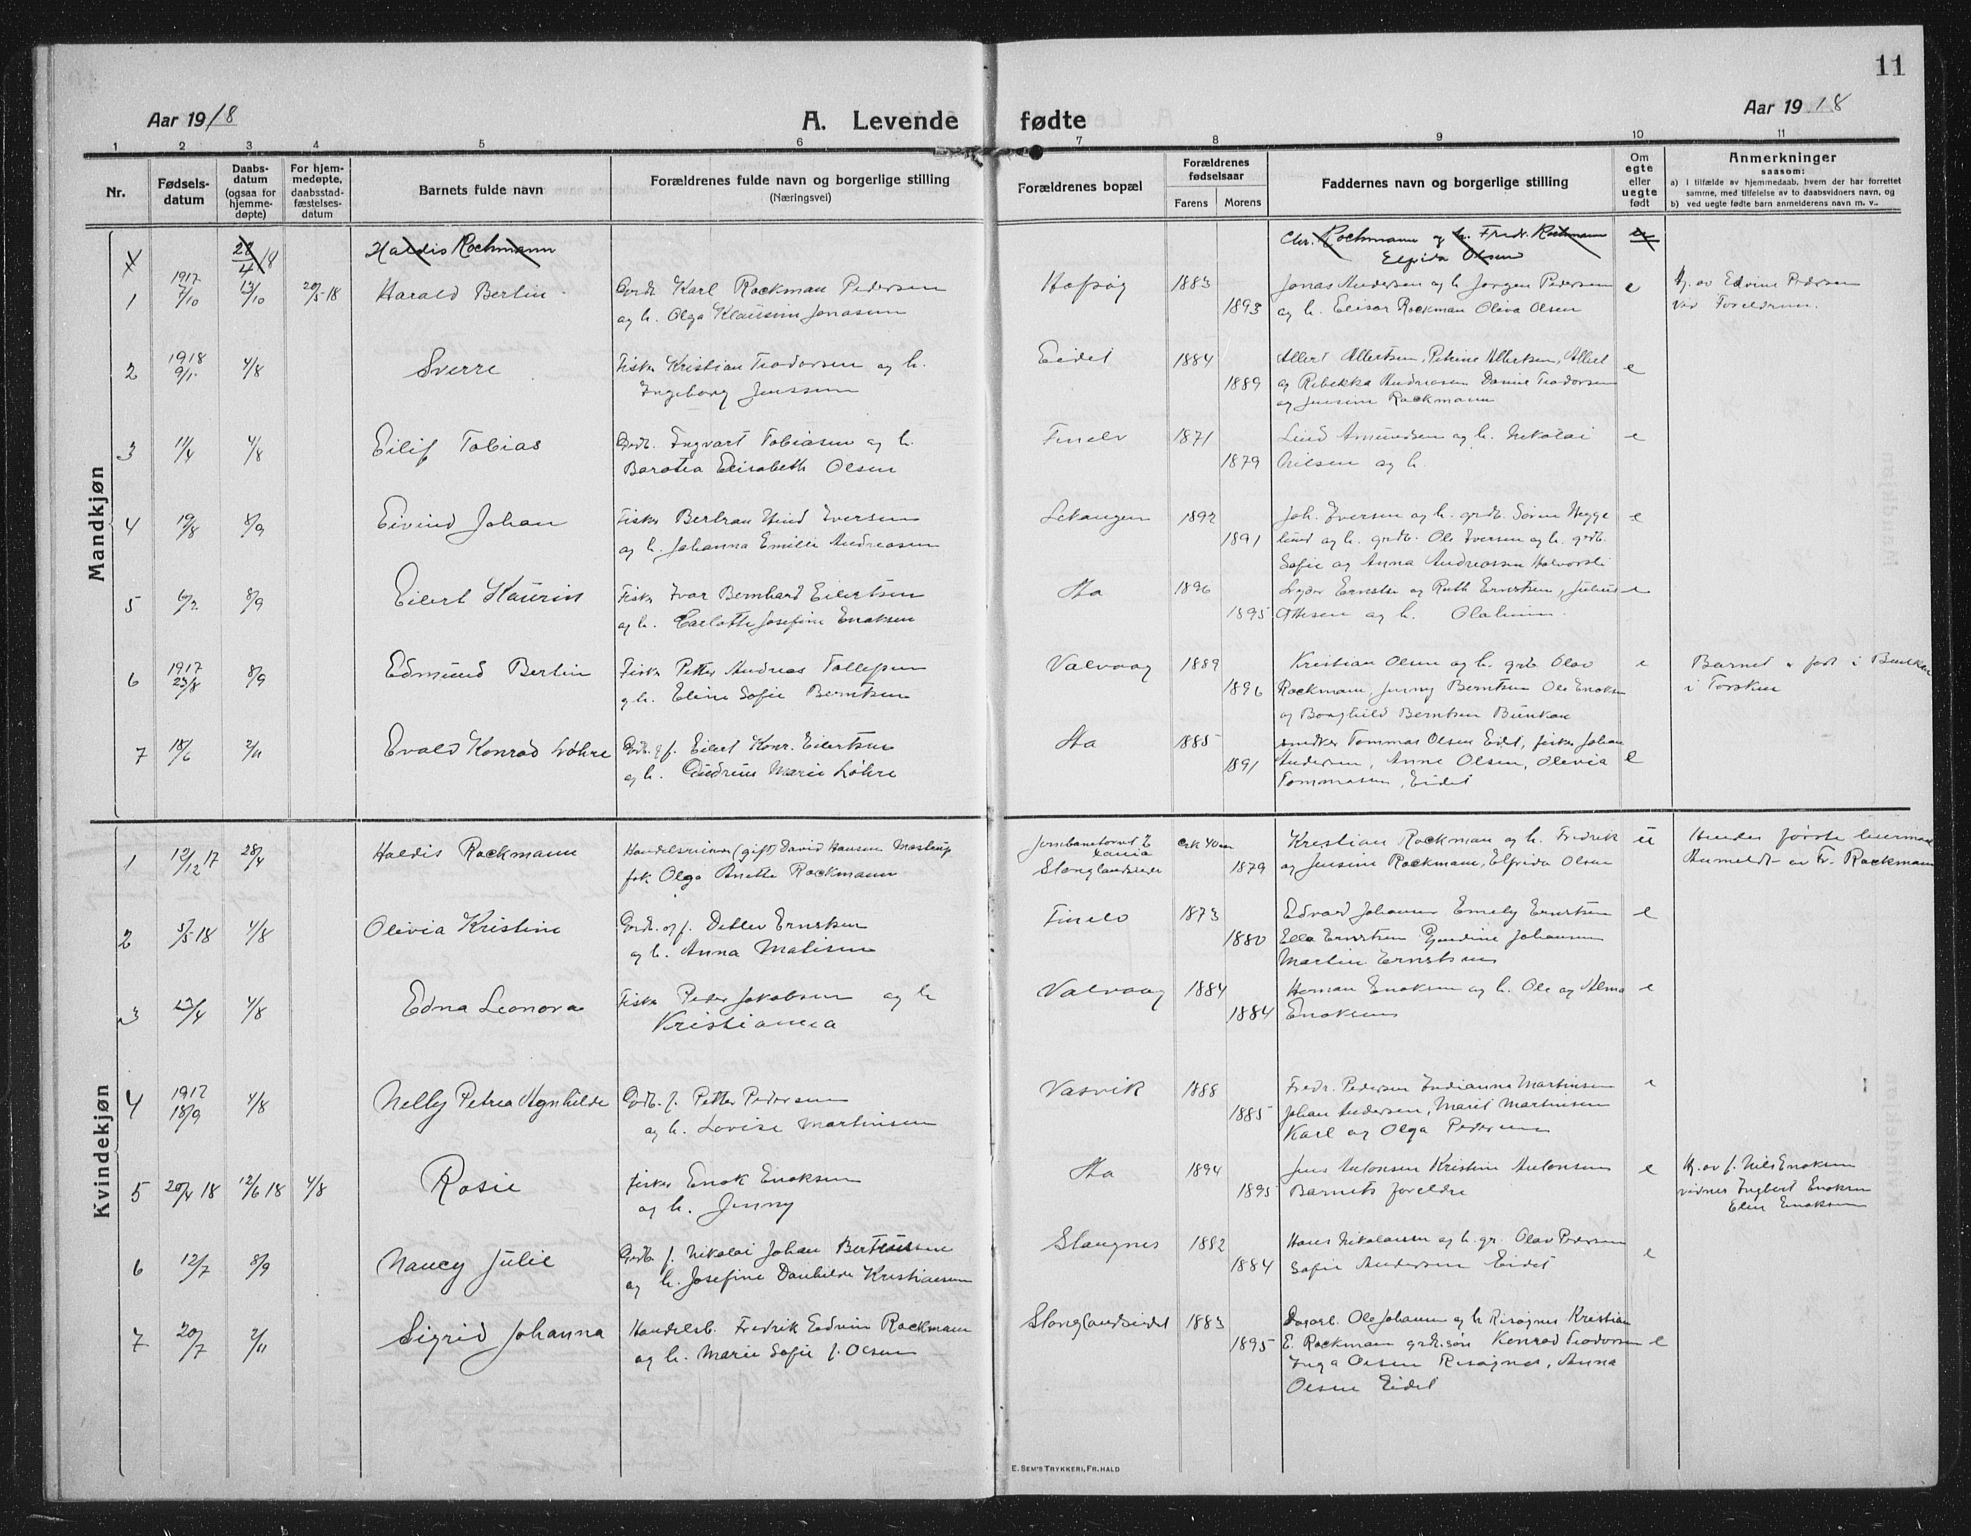 11
Aar 1918
A. Levende fødte
Aar 1918
1 2 3 4 5 6 7 8 9 10 11
Nr.
Fødsels-datum
Daabs-datum (ogsaa for hjemme-døpte)
For hjem-medøpte, daabsstad-fæstelses-datum
Barnets fulde navn
Forældrenes fulde navn og borgerlige stilling
(Næringsvei)
Forældrenes bopæl
Forældrenes fødselsaar
Farens Morens
Faddernes navn og borgerlige stilling
Om egte eller uegte født
Anmerkninger
saasom:
a) I tilfælde av hjemmedaab, hvem der har forrettet samme, med tilføielse av to daabsvidners navn, og
b) ved uegte fødte barn anmelderens navn m. v..
Mandkjøn
28/4 18 Haldis Rochmann Chr. Rochmann og h. Fredr. Rochmann
Elfrida Olsen
1 1917 7/10 13/10 20/5-18 Harald Berlin Grdb. Karl Rockman Pedersen Hofsøy 1883 Jonas Andersen og h. Jørgen Pedersen e Hj. av Edvine Pedersen
og h. Olga Klausine Jonasen 1893 og h. Elisar Rockman Oliva Olsen
2 1918 9/1 4/8 Sverre Fisker Kristian Teodorsen og h. Eidet 1884 Albert Albertsen, Petrine Albertsen, Albert e
Ingeborg Jenssen 1889 og Rebekka Andreasen Danine Teodorsen
og Jensine Rockmann
3 11/4 4/8 Eilif Tobias Grdb. Ingvart Tobiasen og h. Finelv 1871 Amundsen og h. Nikolai e
Barotea Elisabeth Olsen 1879 Nilsen og h.
4 19/8 8/9 Eivind Johan Fisker Bertran Hind Eversen Lekangen 1892 Joh. Iversen og h. grdb. Søren Hegge e
og h. Johanna Emilie Andreasen 1891 lund og h. grdb. Ole Iversen og h. grdb.
Sofie og Anna Andreassen
5 6/2 8/9 Eilert Kaurin Fisker Ivar Bernhard Eilertsen Aa 1896 Ernstsen og Ruth Ernstsen, Julius e
og h. Carlotte Josefine Enoksen 1895 Ottesen og h.
6 1917 23/8 8/9 Edmund Berlin Fisker Petter Andreas Tollefsen Valvaag 1889 Kristian Olsen og h. grdb Olav e Barnet er født i
og h. Eline Sofie Berntsen 1896 Rockmann, Jenny Berntsen Ole Enoksen i Torsken
og Borghild Berntsen Bunkan
7 18/6 2/11 Evald Konrad Løhre Grdb. og f. Eilert Konr. Eilertsen Aa 1885 snedker Tommas Olsen Eidet, fisker Johan
og h. Gudrun Marie Løhre 1891 Andersen, Anne Olsen, Olevia e
Tommasen, Eidet
Kvindekjøn
1 12/12 17 28/4 Haldis Rockmann Handelsreisende (gift) David Hansen Mastrup Jernbanetorvet cirk 40 aar Kristian Rockman og h. Fredrik u Hendes første leiermaal
Olga Anette Rockmann Stonglandseidet 1879 og Jensine Rockmann, Elfrida Olsen Anmeldt av Fr. Rockmann
2 5/5-18 4/8 Olivia Kristine Grdb. og f. Detlev Ernstsen Finelv 1873 Edvard Johansen Emely Ernstsen e
og h. Anna Matisen 1880 Ella Ernstsen Johansen
Martin Ernstsen
3 23/4 4/8 Edna Leonora Fisker Peder Jakobsen og h Valvaag 1884 Herman Enoksen og h. Ole og Alma e
Kristianna 1884 Enoksen
4 1917 18/9 4/8 Nelly Petrea Agnhilde Grdb. f. Petter Pedersen Vasvik 1888 Fredr. Pedersen Indianna Martinsen e
og h. Lovise Martinsen 1885 Johan Andersen, Marit Martinsen
Karl og Olga Pedersen
5 20/4 18 12/6 18 4/8 Rosie fisker Enok Enoksen Aa 1894 Jens Antonsen Kristine Antonsen e Hj. av f. Nils Enoksen
og h. Jenny 1895 Barnets foreldre vidner Ingbert Enoksen
Eline Enoksen
6 12/7 8/9 Nancy Julie Grdb f. Nikolai Johan Bertheussen Stangnes 1882 Hans Nikolaisen og h. gr. Olav Pedersen e
og h. Josefine Danhilde Kristiansen 1884 Sofie Andersen Eidet
7 20/7 2/11 Sigrid Johanna Handelsb. Fredrik Edvin Rockmann Stonglandseidet 1883 Ole Johansen og h Risøgnes Kristian
og h. Marie Sofie f. Olsen 1895 E. Rockmann grdb.søn Konrad Teodorsen e
Inga Olsen Risøgnes, Anna
Olsen Eidet
E. SEM'S TRYKKERI, FR.HALD